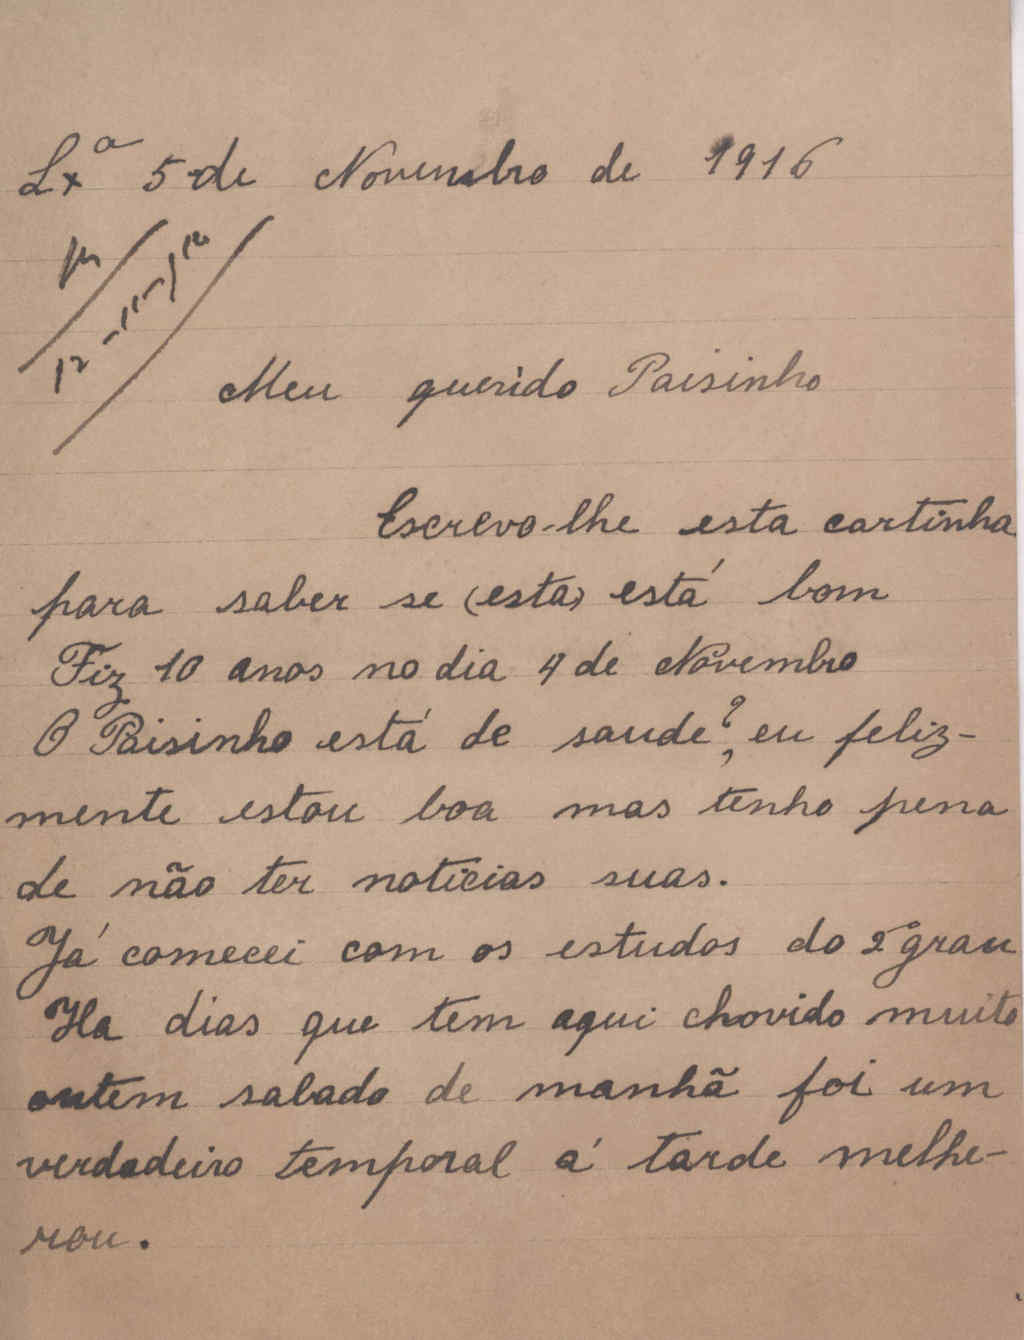 Lxª 5 de Novembro de 1916
12-11-16
Meu querido Paisinho
Escrevo-lhe esta cartinha
para saber se (esta) está bom
Fiz 10 anos no dia 4 de Novembro
O Paisinho está de saude?, eu feliz-
mente estou boa mas tenho pena
de não ter noticias suas.
Já comecei com os estudos do 2º grau
Ha dias que tem aqui chovido muito
ontem sabado de manhã foi um
verdadeiro temporal á tarde melhe-
rou.